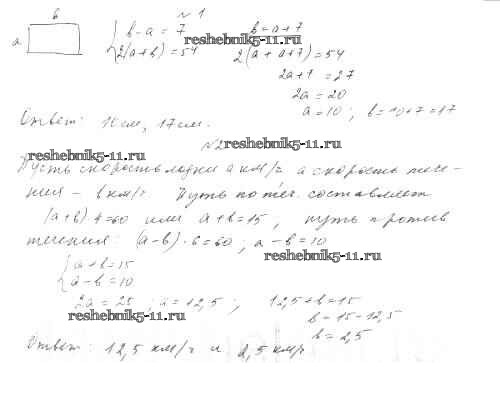 № 1
b
a
{ b - a = 7
2(a+b) = 54
b = a + 7
reshebnik5-11.ru
2(a + a+7) = 54
2a+7 = 27
2a = 20
a = 10 ; b = 10+7 = 17
Ответ: 10 см, 17 см.
№2
reshebnik5-11.ru
reshebnik5-11.ru
Пусть скорость лодки a км/ч а скорость тече-
ния - b км/ч Путь по теч. составляет
(a+b)·4=60 или a+b=15, путь против
течения: (a-b)·6=60; a-b=10
reshebnik5-11.ru
{ a+b=15
a-b=10
2a = 25 ; a = 12,5 ; 12,5+b=15
reshebnik5-11.ru
b = 15-12,5
b = 2,5
Ответ: 12,5 км/ч и 2,5 км/ч